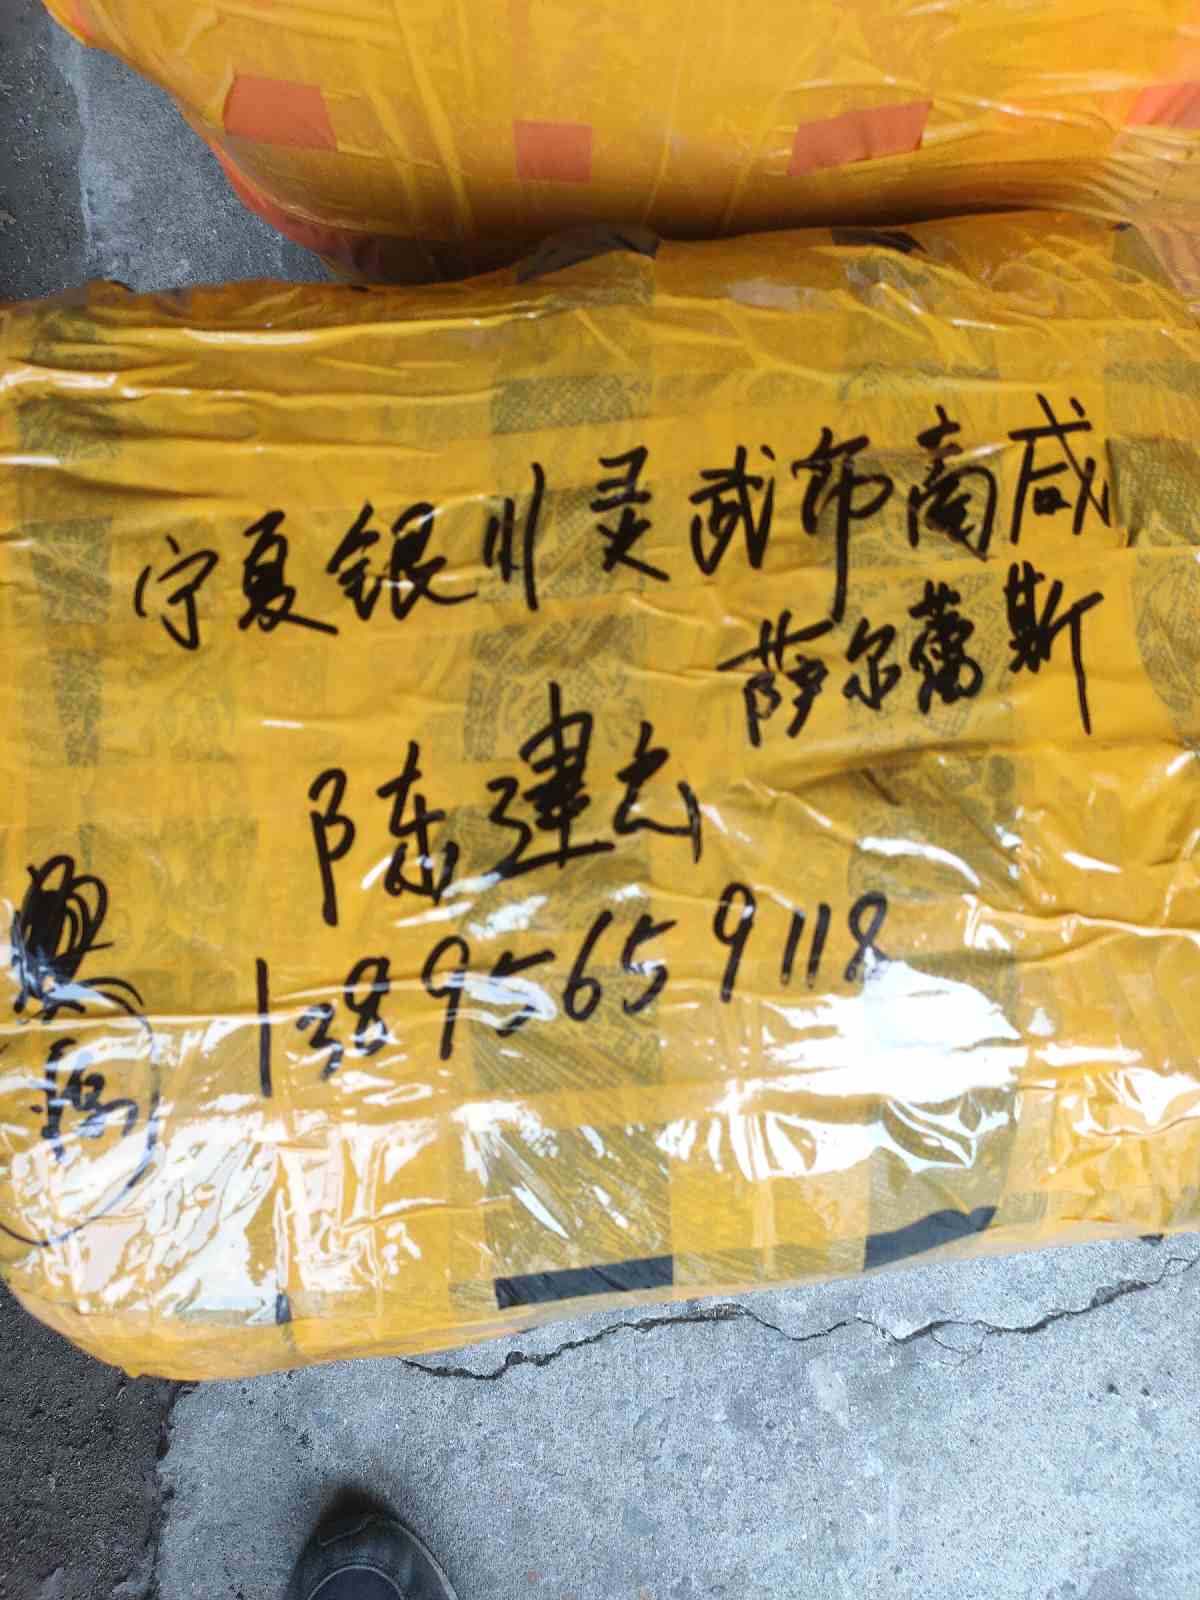 宁夏银川灵武市商咸
萨尔蕾斯
陈建云
13895659118